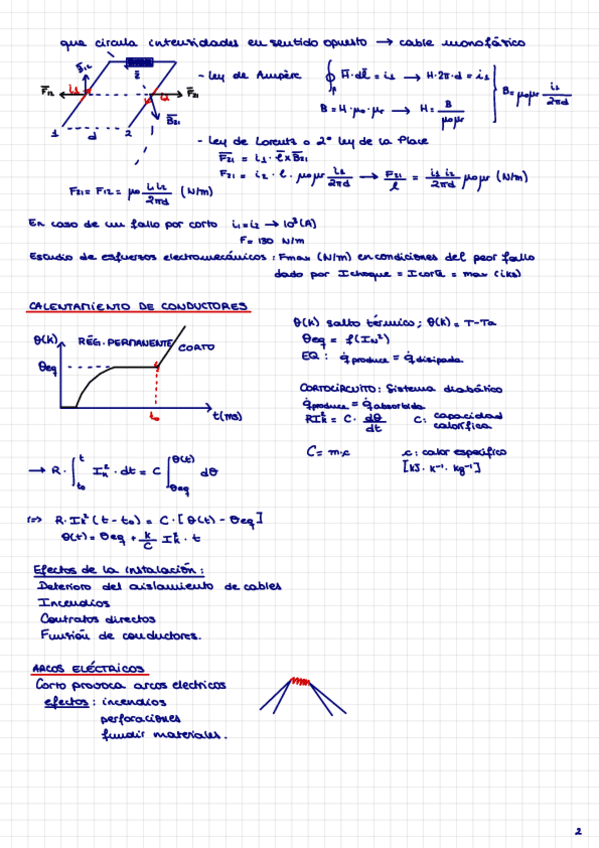 que circula intensidades en sentido opuesto → cable monofásico
B̅12
F̅12 i1 i2 F̅21
B̅21
1 d 2
- Ley de Ampère ∮ H̅·dl̅ = i1 → H·2π·d = i1
B = H·μo·μr → H = B/μoμr
B = μoμr i1/2πd
- Ley de Lorentz o 2ª ley de la Place
F̅21 = i1 · l̅ x B̅21
F21 = i2 · l · μoμr i1/2πd → F21/l = i1 i2/2πd μoμr (N/m)
F21 = F12 = μo i1 i2/2πd (N/m)
En caso de un fallo por corto i1=i2 → 10³(A)
F = 130 N/m
Estudio de esfuersos electromecánicos : Fmax (N/m) en condiciones del peor fallo
dado por Ichoque = Icorta = max (iks)
CALENTAMIENTO DE CONDUCTORES
θ(K) RÉG. PERMANENTE CORTO
θeq
to t(ms)
θ(K) salto térmico ; θ(K) = T-Ta
θeq = f(IN²)
EQ : q̇produce = q̇disipada
CORTOCIRCUITO: Sistema diabático
q̇produce = q̇absorbida
RIk² = C · dθ/dt C: capacidad calorífica
C = m·c c: calor específico
[kJ · K⁻¹ · kg⁻¹]
→ R · ∫to^t Ik² · dt = C ∫θeq^θ(t) dθ
⇒ R·Ik² (t - to) = C · [θ(t) - θeq]
θ(t) = θeq + k/C Ik² · t
Efectos de la instalación :
Deterioro del aislamiento de cables
Incendios
Contratos directos
Funsión de conductores.
ARCOS ELÉCTRICOS
Corto provoca arcos electricos
efectos : incendios
perforaciones
fundir materiales.
2